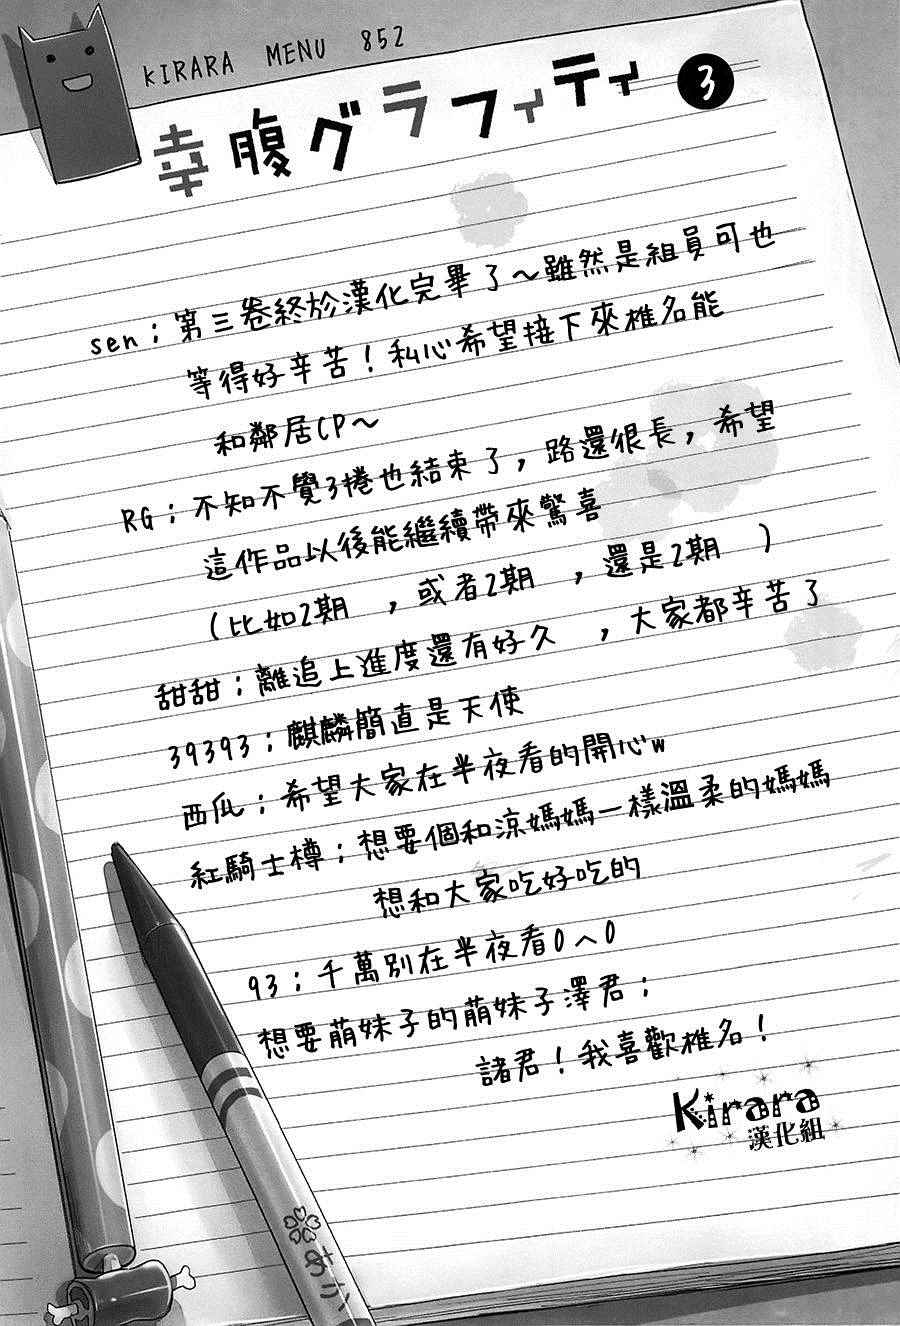 KIRARA MENU 852
幸腹グラフィティ 3
sen：第三卷終於漢化完畢了～雖然是組員可也
等得好辛苦！私心希望接下來椎名能
和鄰居CP～
RG：不知不覺3捲也結束了，路還很長，希望
這作品以後能繼續帶來驚喜
（比如2期　，或者2期　，還是2期　）
甜甜：離追上進度還有好久　，大家都辛苦了
39393：麒麟簡直是天使
西瓜：希望大家在半夜看的開心w
紅騎士樽：想要個和涼媽媽一樣溫柔的媽媽
想和大家吃好吃的
93：千萬別在半夜看0へ0
想要萌妹子的萌妹子澤君：
諸君！我喜歡椎名！
Kirara
漢化組